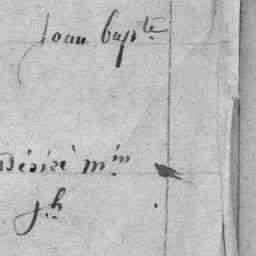 Jean Bapte
Désiré min
jh